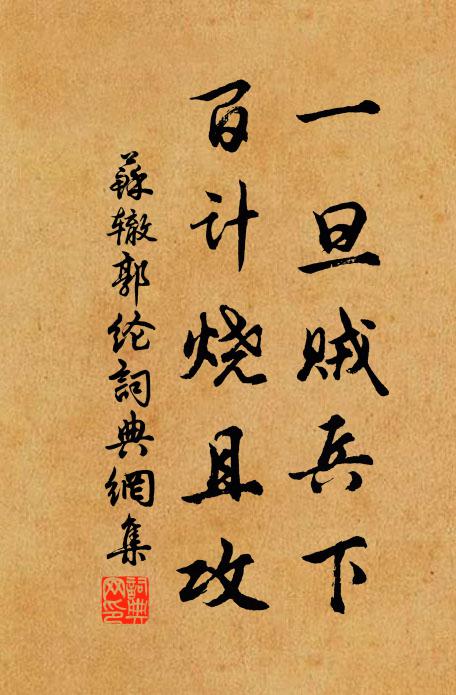 一旦贼兵下
百计烧且攻
蘇辙郭纶詞典網集
詞典網印